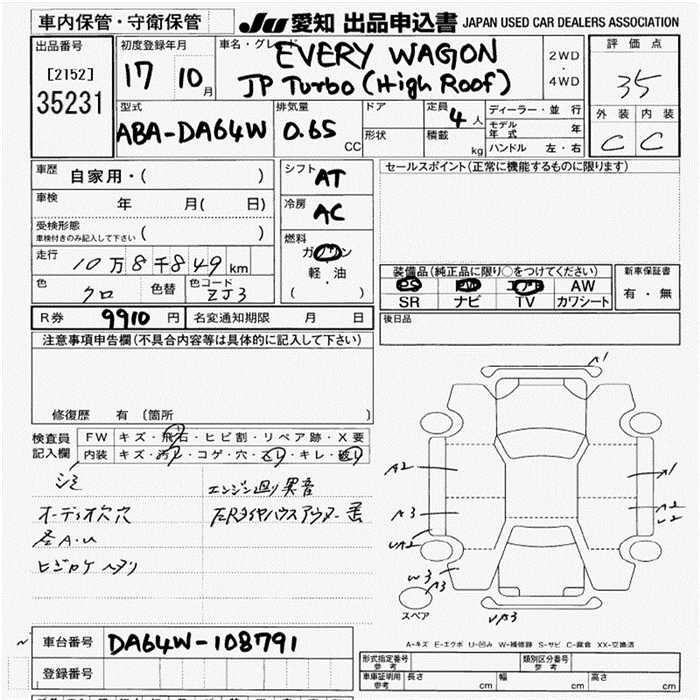 車内保管・守衛保管
JU 愛知 出品申込書 JAPAN USED CAR DEALERS ASSOCIATION
出品番号
[2152]
35231
初度登録年月
17 10月
車名・グレード
EVERY WAGON
JP Turbo (High Roof)
2WD
4WD
評価点
35
外装 内装
C C
型式
ABA-DA64W
排気量
0.65 CC
ドア
形状
定員
4人
積載
kg
ディーラー・並行
モデル年式 年
ハンドル 左・右
車歴 自家用・( )
車検 年 月( 日)
受検形態
車検付きのみ記入して下さい ( )
走行 10万8千849km
色 クロ 色替 色コード ZJ3
シフト AT
冷房 AC
燃料
ガソリン
軽・油
( )
セールスポイント(正常に機能するものに限ります)
装備品(純正品に限り○をつけてください)
PS PW エアB AW
SR ナビ TV カワシート
新車保証書
有・無
後日品
R券 9910円 名変通知期限 月 日
注意事項申告欄(不具合内容等は具体的に記入して下さい)
修復歴 有(箇所 )
検査員
記入欄
FW キズ・飛石・ヒビ割・リペア跡・X要
内装 キズ・汚れ・コゲ・穴・スレ・キレ・破れ
シミ
エンジン廻り異音
オーディオ穴穴
ヒジカケヘタリ
A1
A2
A3
UA2
W3
A1
A2
U2
UA3
スペア
A-キズ E-エクボ U-凹み W-補修跡 S-サビ C-腐食 XX-交換済
車台番号 DA64W-108791
登録番号
形式指定番号
参考
類別区分番号
参考
車庫証明用
参考
長さ cm 幅 cm 高さ cm